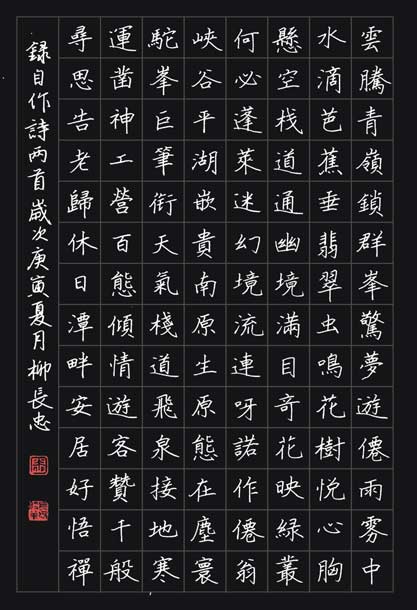 雲騰青嶺鎖群峯驚夢遊僊雨雾中
水滴芭蕉垂翡翠虫鳴花樹悦心胸
懸空栈道通幽境滿目奇花映緑叢
何必蓬萊迷幻境流連呀諾作僊翁
峽谷平湖嵌貴南原生原態在塵寰
駝峯巨筆衔天氣棧道飛泉接地寒
運凿神工營百態傾情遊客贊千般
尋思告老歸休日潭畔安居好悟禪
録自作詩两首歲次庚寅夏月柳長忠